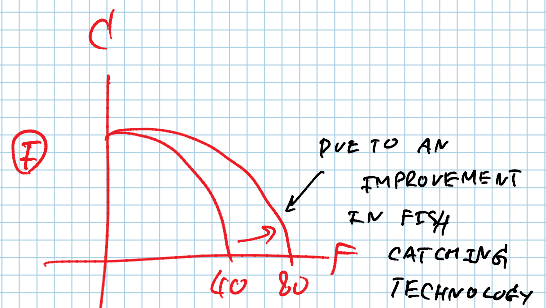 C
I
DUE TO AN
IMPROVEMENT
IN FISH
CATCHING
TECHNOLOGY
F
40 80